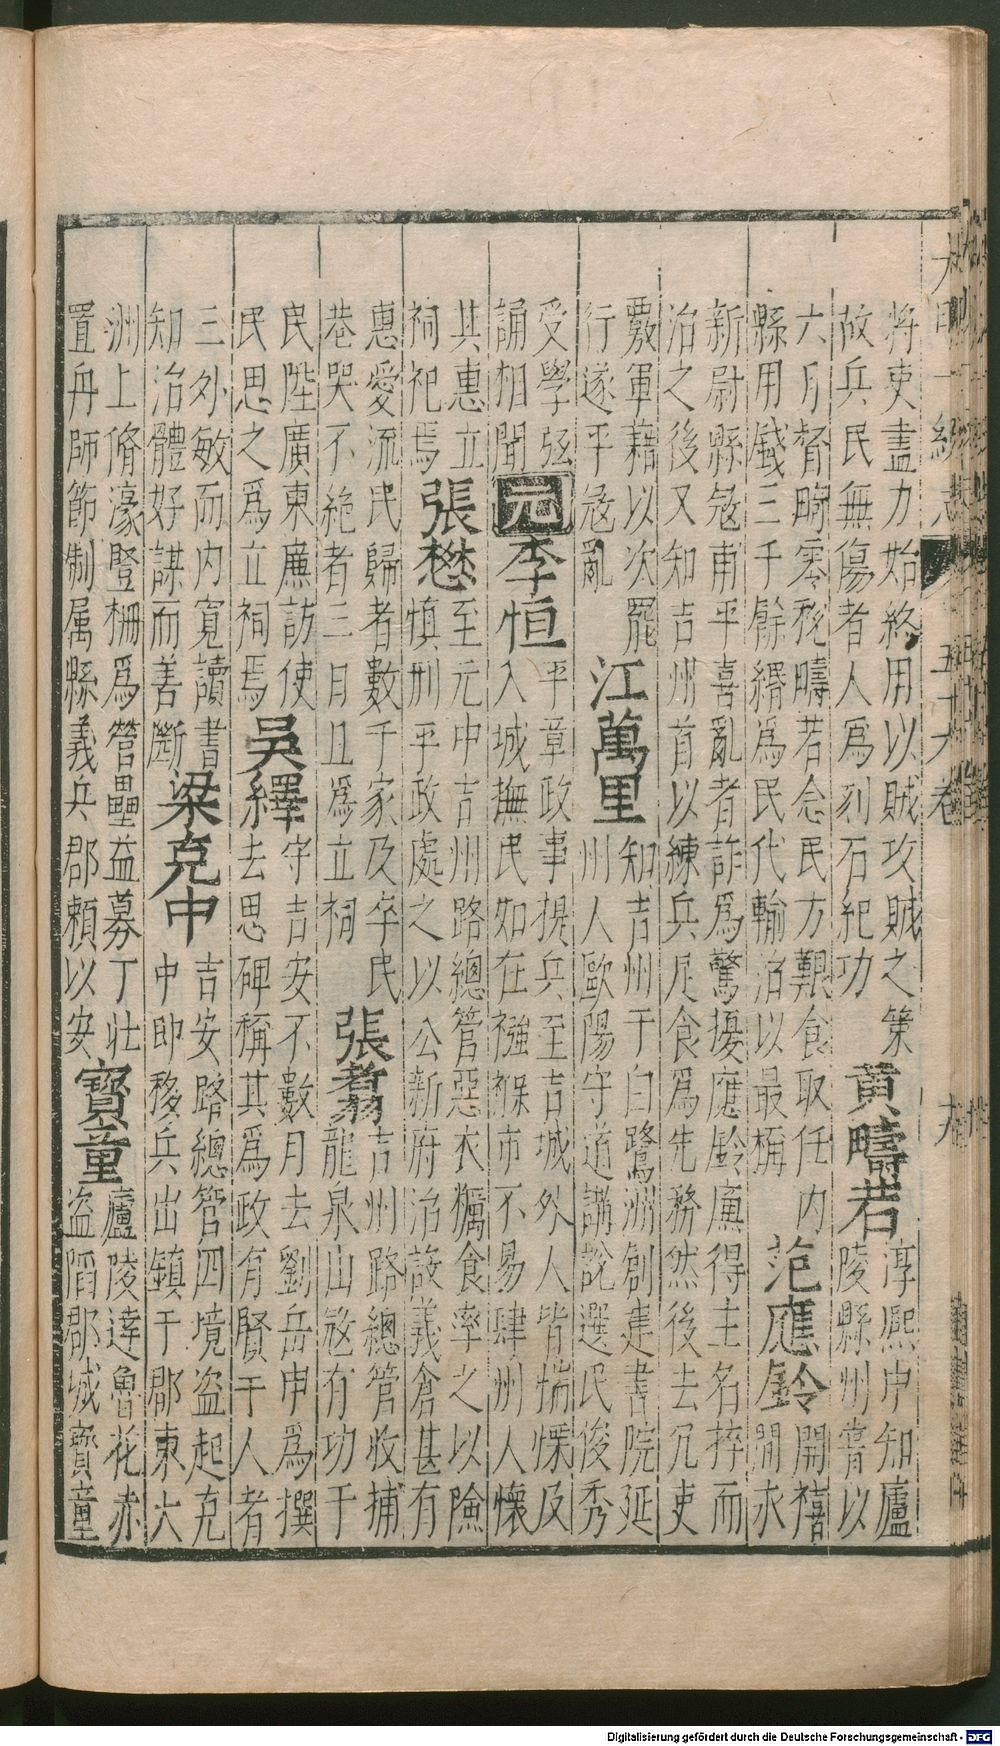 大明一統志 五十六卷 九
將吏盡力始終用以賊攻賊之策
故兵民無傷者人爲刻石紀功
黃疇若
淳熙中知廬
陵縣州嘗以
六月督畸零稅疇若念民方艱食取任內
縣用錢三千餘緡爲民代輸治以最稱
范應鈴
開禧
間永
新尉縣寇甫平喜亂者詐爲驚擾應鈴廉得主名捽而
治之後又知吉州首以練兵足食爲先務然後去冗吏
覈軍籍以次罷
行遂平寇亂
江萬里
知吉州于白鷺洲創建書院延
州人歐陽守道講說選民俊秀
受學弦
誦相聞
元
李恒
平章政事提兵至吉城外人皆惴慄及
入城撫民如在襁褓市不易肆州人懷
其惠立
祠祀焉
張懋
至元中吉州路總管惡衣糲食率之以險
慎刑平政處之以公新府治設義倉甚有
惠愛流民歸者數千家及卒民
巷哭不絶者三日且爲立祠
張翥
吉州路總管收捕
龍泉山寇有功于
民陞廣東廉訪使
民思之爲立祠焉
吳繹
守吉安不數月去劉岳申爲撰
去思碑稱其爲政有賢于人者
三外敏而內寬讀書
知治體好謀而善斷
梁克中
吉安路總管四境盜起克
中帥移兵出鎮于郡東大
洲上脩濠豎柵爲營壘益募丁壯
置舟師節制属縣義兵郡頼以安
寳童
廬陵達魯花赤
盜䧟郡城寳童
Digitalisierung gefördert durch die Deutsche Forschungsgemeinschaft - DFG